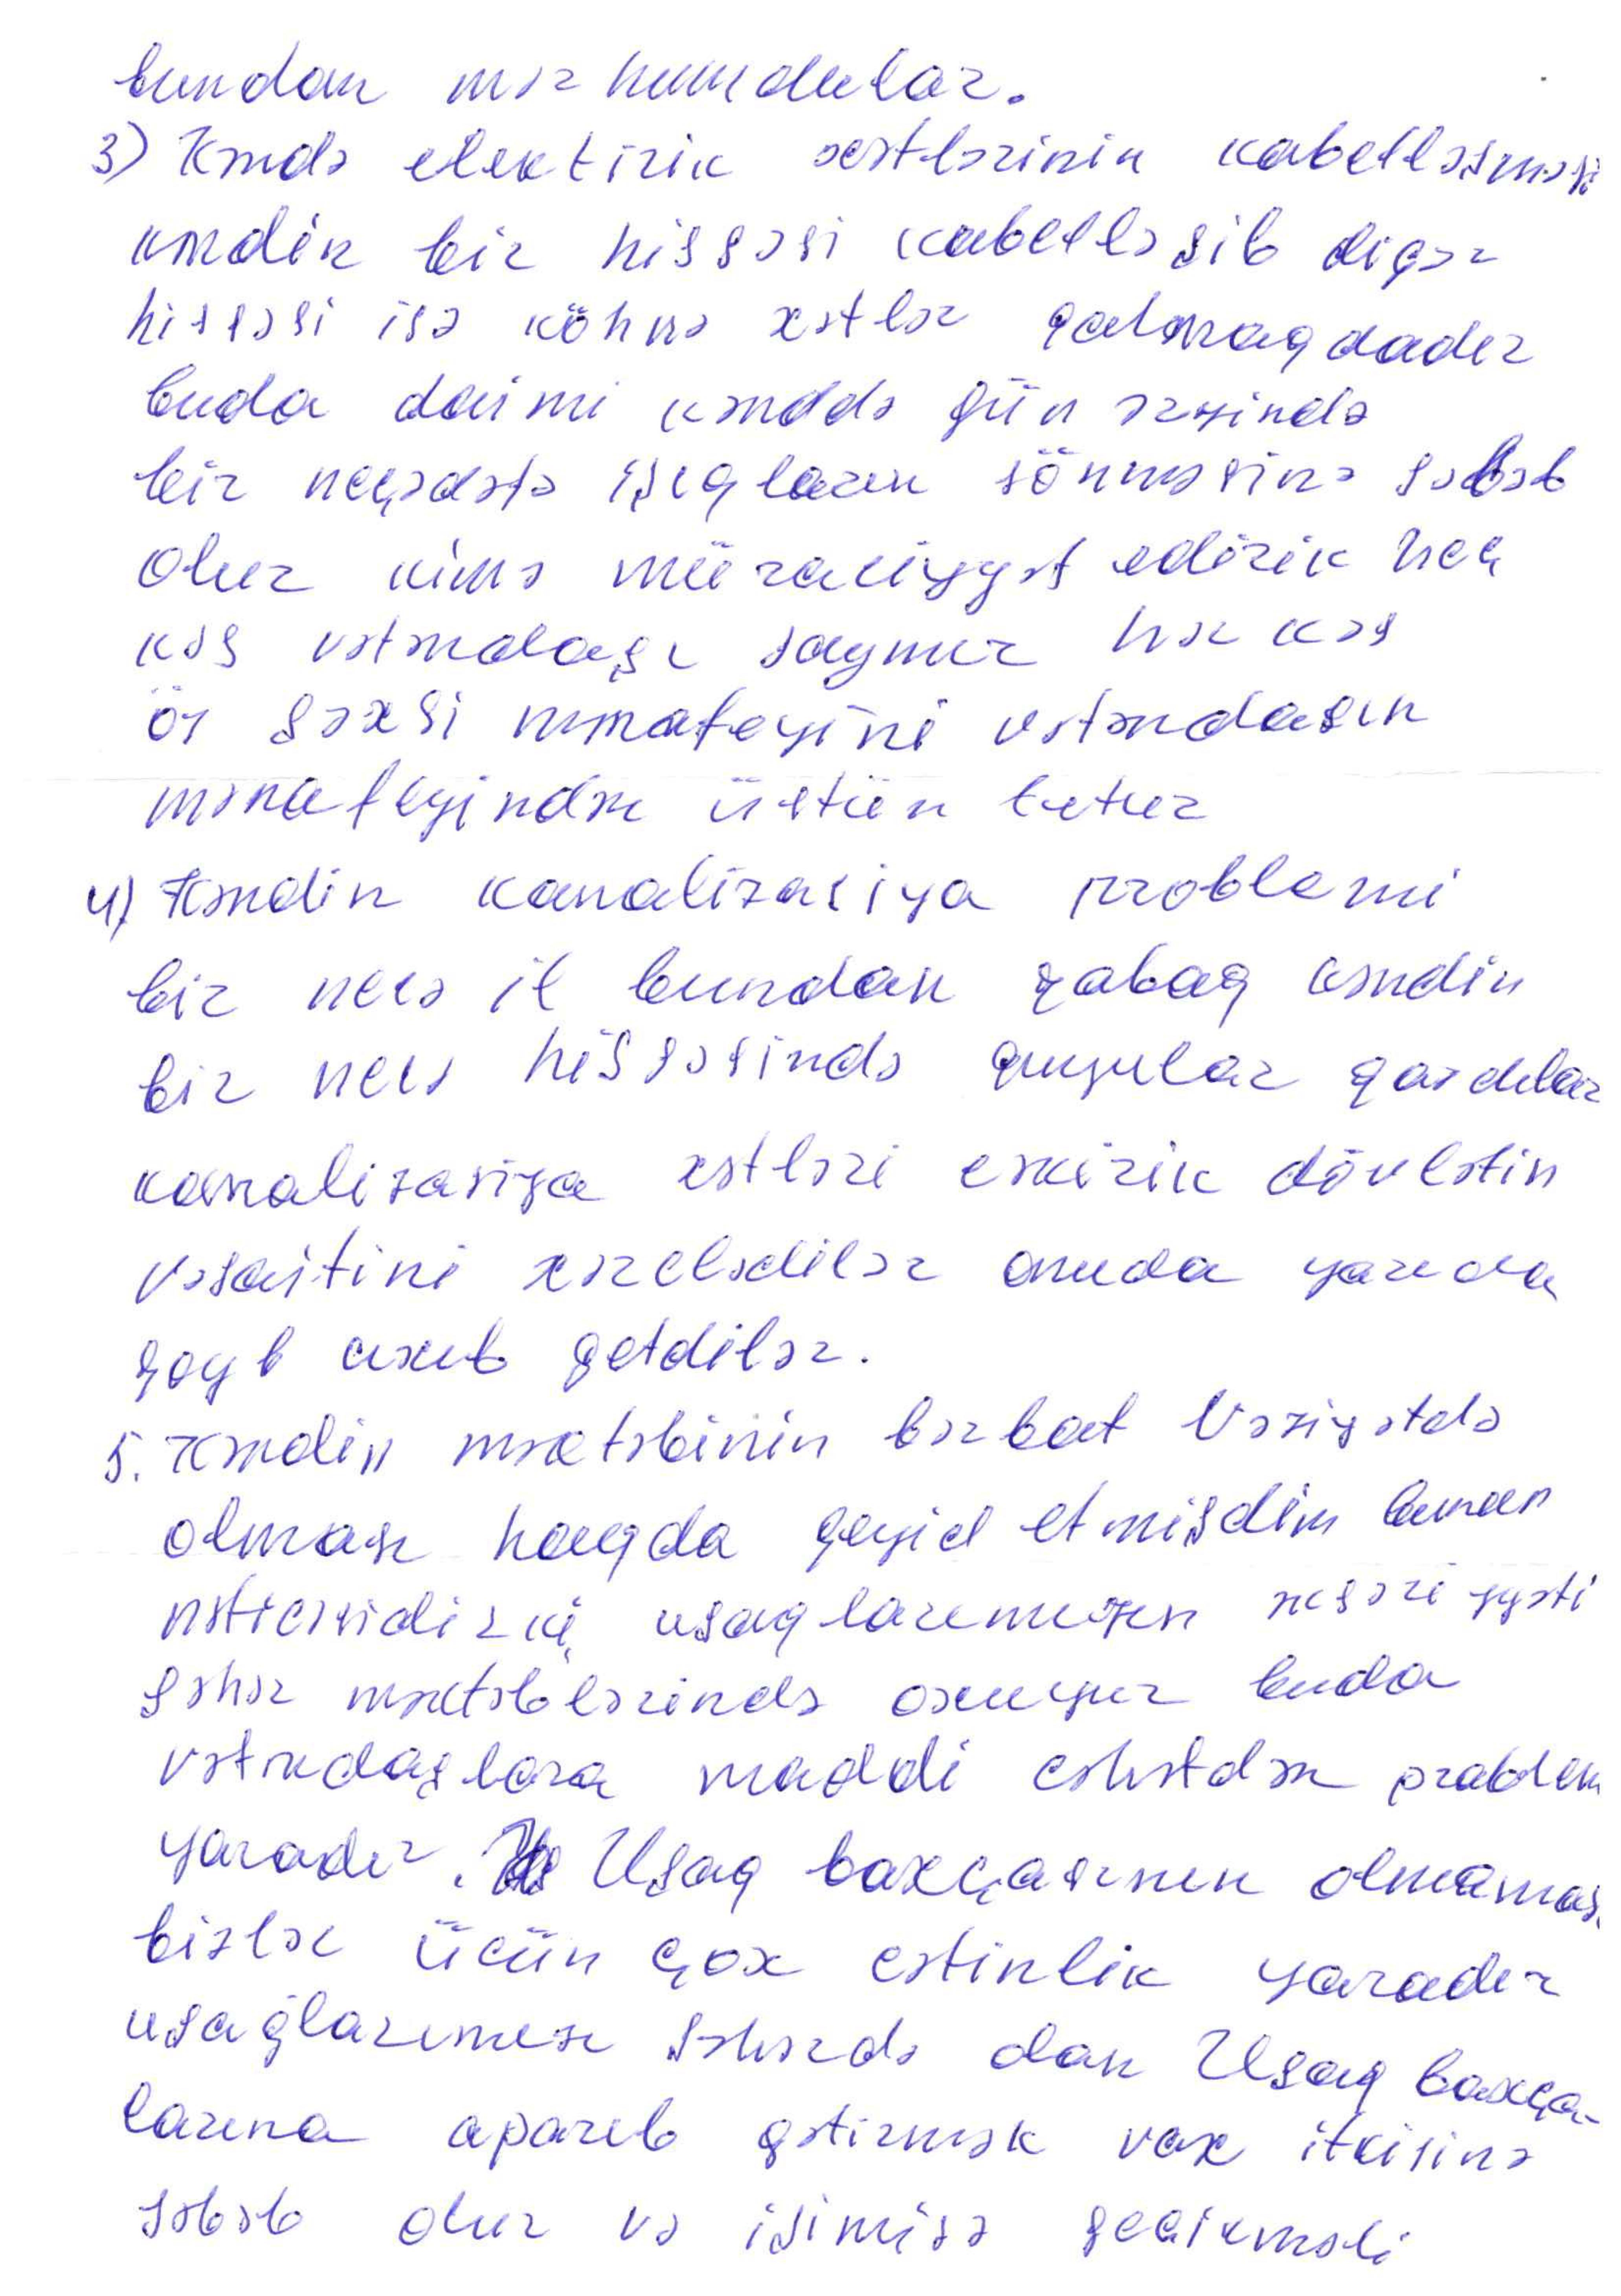 bundan mərhumdular.
3) Kəndə elektirik xətlərinin kabelləşməsi
kəndin bir hissəsi kabelləşib digər
hissəsi isə köhnə xətlər qalmaqdadır
buda daimi kənddə gün ərzində
bir neçədəfə işıqların sönməsinə səbəb
olur kimə müraciyyət edirik heç
kəs vətəndaşı saymır hər kəs
öz şəxsi mənafeyini vətəndaşın
mənafeyindən üstün tutur
4) Kəndin kanalizasiya problemi
bir neçə il bundan qabaq kəndin
bir neçə hissəsində quyular qazdılar
kanalizasiya xətləri çəkirik dövlətin
vəsaitini xərclədilər onuda yarıda
qoyb çıxıb getdilər.
5. Kəndin məktəbinin bərbat vəziyətdə
olması haqda qeyid etmişdim bunun
nəticəsidirki uşaqlarımızın əksəriyyəti
şəhər məktəblərində oxuyur buda
vətəndaşlara maddi cəhətdən problem
yaradır. Uşaq baxçasının olmaması
bizlər üçün çox çətinlik yaradır
uşağlarımızı şəhərdə olan Uşaq baxça-
larına aparıb gətirmək vax itkisinə
səbəb olur və işimizə gecikməli